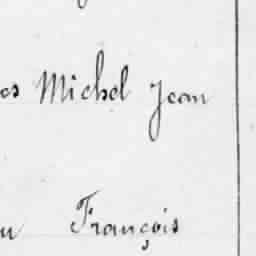 Michel Jean
François